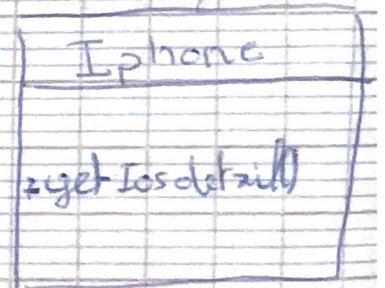 Iphone
+getIosdetail()